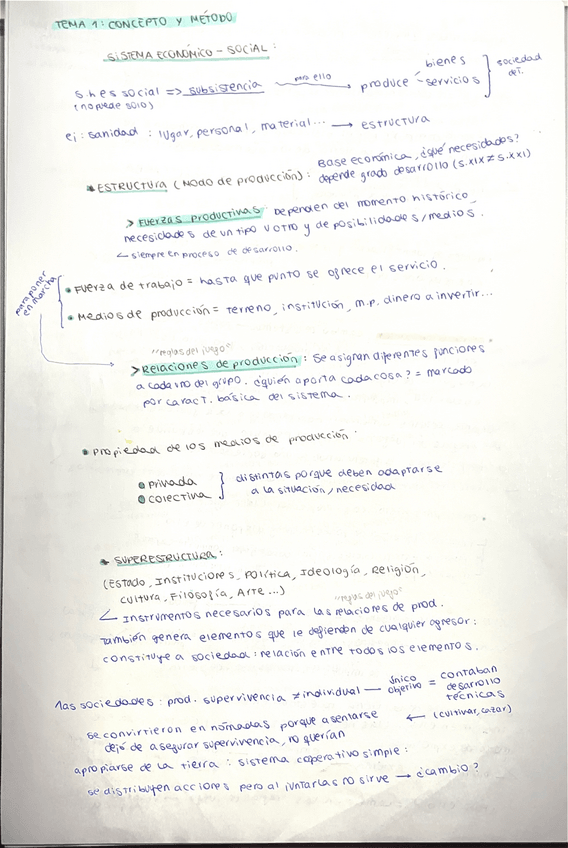 TEMA 1: CONCEPTO Y MÉTODO
SISTEMA ECONÓMICO - SOCIAL:
s.h es social => subsistencia para ello produce bienes servicios } sociedad det.
(no puede solo)
ej: sanidad: lugar, personal, material... → estructura
* ESTRUCTURA (Modo de producción): Base económica, ¿qué necesidades?
depende grado desarrollo (s.XIX ≠ s.XXI)
> Fuerzas productivas Dependen del momento histórico,
necesidades de un tipo u otro y de posibilidades/medios.
siempre en proceso de desarrollo.
para poner en marcha
• Fuerza de trabajo = hasta que punto se ofrece el servicio.
• Medios de producción = terreno, institución, m.p. dinero a invertir...
"reglas del juego"
> Relaciones de producción: Se asignan diferentes funciones
a cada uno del grupo. ¿quién aporta cada cosa? = marcado
por caract. básica del sistema.
• Propiedad de los medios de producción
• privada
• colectiva
} distintas porque deben adaptarse
a la situación/necesidad
* SUPERESTRUCTURA:
(Estado, Instituciones, Política, Ideología, Religión,
Cultura, Filosofía, Arte...)
"reglas del juego"
Instrumentos necesarios para las relaciones de prod.
También genera elementos que le defienden de cualquier agresor:
constituye a sociedad: relación entre todos los elementos.
1as sociedades: prod. supervivencia ≠ individual — único objetivo = contaban desarrollo técnicas
(cultivar, cazar)
se convirtieron en nómadas porque asentarse ←
dejó de asegurar supervivencia, no querían
apropiarse de la tierra: sistema cooperativo simple:
se distribuyen acciones pero al juntarlas no sirve → ¿cambio?